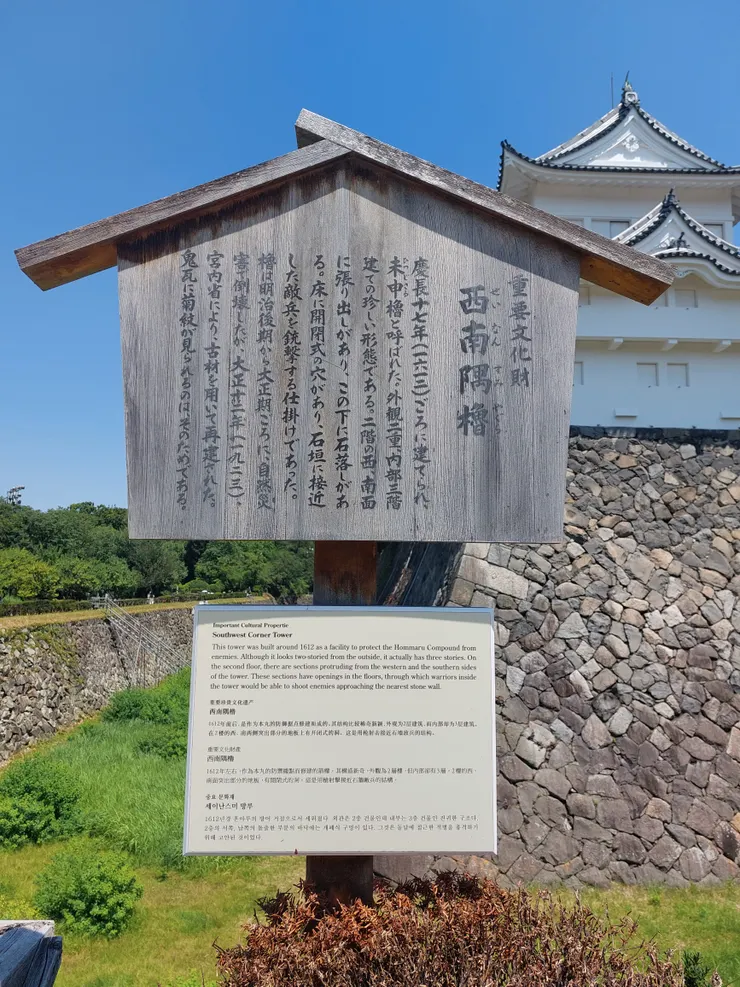 重要文化財
せいなんすみやぐら
西南隅櫓
慶長十七年(一六一二)ごろに建てられ、
未申櫓と呼ばれた。外観二重、内部三階
建ての珍しい形態である。二階の西、南面
に張り出しがあり、この下に石落しがあ
る。床に開閉式の穴があり、石垣に接近
した敵兵を銃撃する仕掛けであった。
櫓は明治後期から大正期ごろに、自然災
害で倒壊したが、大正十二年(一九二三)、
宮内省により、古材を用いて再建された。
鬼瓦に菊紋が見られるのはそのためである。
Important Cultural Propertie
Southwest Corner Tower
This tower was built around 1612 as a facility to protect the Hommaru Compound from
enemies. Although it looks two-storied from the outside, it actually has three stories. On
the second floor, there are sections protruding from the western and the southern sides
of the tower. These sections have openings in the floors, through which warriors inside
the tower would be able to shoot enemies approaching the nearest stone wall.
重要文化遗产
西南隅橹
1612年前后,是作为本丸的防御据点修建而成的。
重要文化財產
西南隅櫓
1612年左右,作為本丸的防禦據點
중요 문화재
세이난스미 망루
1612년경 혼마루의 방어 거점으로서 세워졌다.